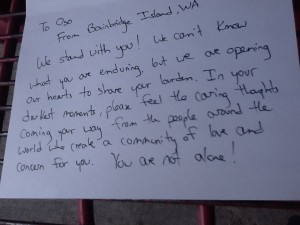 To Oso
From Bainbridge Island, WA
We stand with you! We can't know
what you are enduring but we are opening
our hearts to share your burden. In your
darkest moments, please feel the caring thoughts
coming your way from the people around the
world who create a community of love and
concern for you. You are not alone!